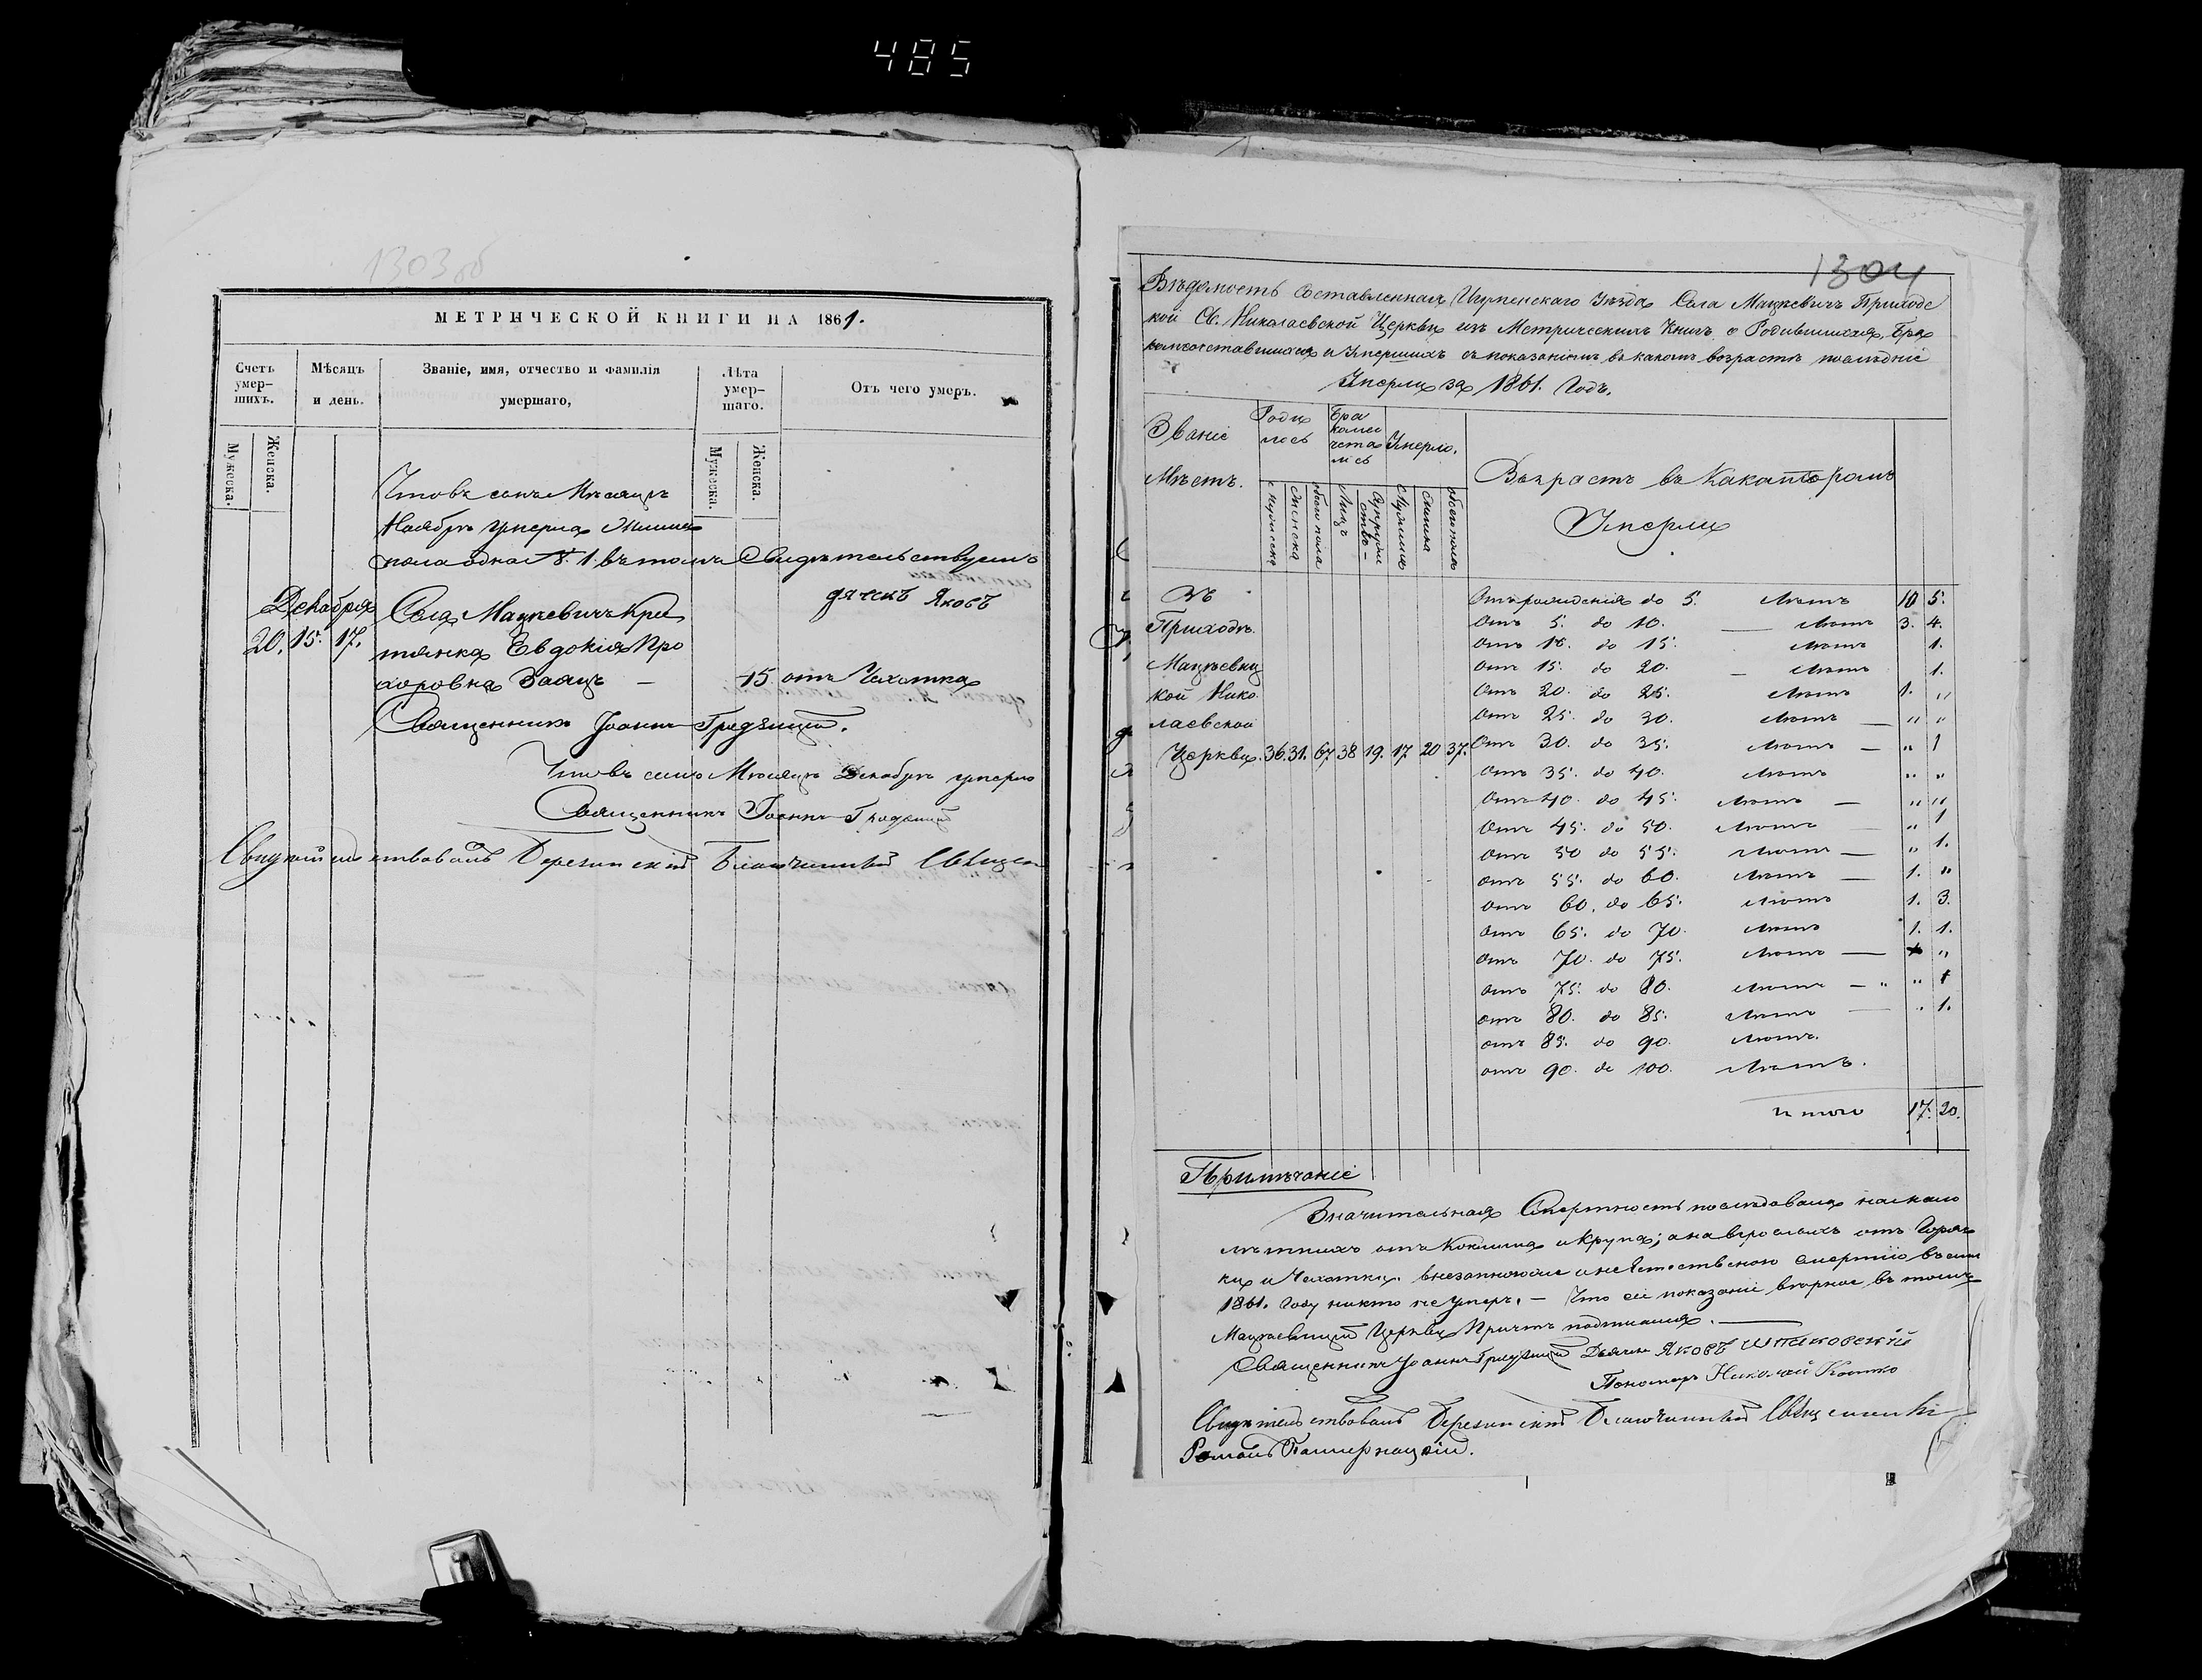 485
1303об
МЕТРИЧЕСКОЙ КНИГИ НА 1861.
Счетъ умер-шихъ.
Мѣсяцъ и день.
Званіе, имя, отчество и фамилія умершаго,
Лѣта умер-шаго.
Отъ чего умеръ.
Мужеска.
Женска.
Мужеска.
Женска.
Что въ семъ Мѣсяцѣ
Ноябрѣ умерла Женска
пола одна № 1. въ томъ Свидѣтельствуемъ
дячекъ Яковъ
Декабря
20. 15. 17.
Села Мацкевичъ Крес
тянка Евдокія Про
хоровна Заяцъ —
15. отъ Чахотки
Священникъ Іоаннъ Гридзицкій.
Что въ семъ Мѣсяцѣ Декабрѣ умерло
Священникъ Іоаннъ
Свидѣтельствовалъ Березинскій Благочинный Священ
1304
Вѣдомость Составленная Игуменскаго Уѣзда Села Мацкевичъ Приходс
кой Св. Николаевской Церкви изъ Метрическихъ Книгъ о Родившихся, Бра
комсочетавшихся и Умершихъ съ показаніемъ въ какомъ возрастѣ послѣдніе
Умерли за 1861. Годъ.
Званіе
Мѣстъ.
Роди
лось
Бра
комсо
чета
лись
Умерло.
Возрастъ въ Какоторомъ
Умерли
Мужеска
Женска
обоего пола
Лицъ
Супруже
ствъ
Мужеска
Женска
обоего пола
Въ
Приходѣ
Мацкевиц
кой Нико
лаевской
Церкви. 36. 31. 67. 38 19. 17 20 37.
Отъ рожденія до 5. Лѣтъ 10 5.
Отъ 5. до 10. — Лѣтъ 3. 4.
Отъ 10. до 15. Лѣтъ 1.
Отъ 15. до 20. — Лѣтъ 1.
Отъ 20. до 25. Лѣтъ 1. "
Отъ 25. до 30. Лѣтъ — " "
Отъ 30. до 35. Лѣтъ — " 1
Отъ 35. до 40. Лѣтъ " "
Отъ 40. до 45. Лѣтъ — " "
Отъ 45. до 50. Лѣтъ — " 1
Отъ 50 до 55. Лѣтъ — " 1.
Отъ 55. до 60. Лѣтъ — 1. "
Отъ 60. до 65. Лѣтъ 1. 3.
Отъ 65. до 70. Лѣтъ 1. 1.
Отъ 70. до 75. Лѣтъ — "
Отъ 75. до 80. Лѣтъ — " "
Отъ 80. до 85. Лѣтъ — 1.
Отъ 85. до 90. Лѣтъ.
Отъ 90. до 100. Лѣтъ.
Итого 17. 20.
Примѣчаніе
Значительная Смертность послѣдовала на мало
лѣтнихъ отъ Коклюша и Крупа; а на взрослыхъ отъ Горяч
ки и Чахотки. внезапною и не Естественною смертію въ семъ
1861. Году никто не умеръ. — Что сіе показаніе вѣрное въ томъ
Мацкевицкой Церкви Причтъ подписался. —
Священникъ Іоаннъ Гридзицкій Дьячекъ Яковъ Шпаковскій
Пономарь Николай
Свидѣтельствовалъ Березинскій Благочинный Священникъ
Романъ Пастернацкій.